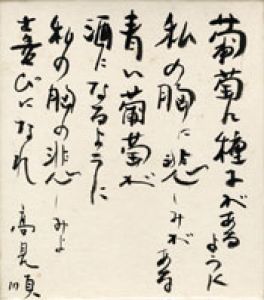 葡萄に種子があるように
私の胸に悲しみがある
青い葡萄が
酒になるように
私の胸の悲しみよ
喜びになれ
高見順